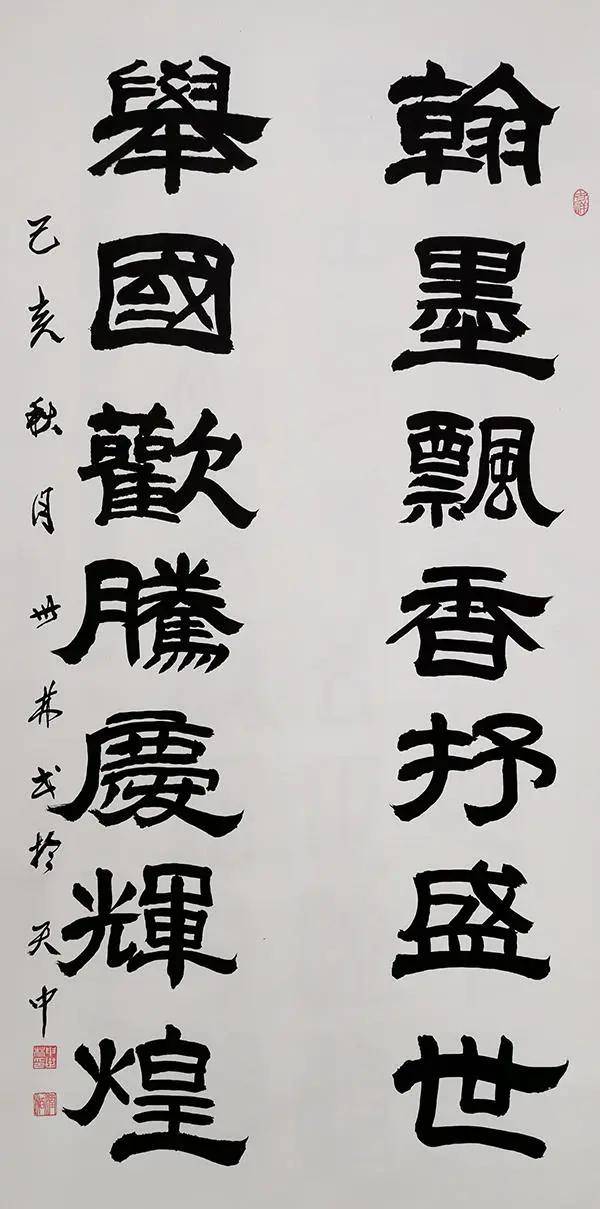 翰墨飄香抒盛世
舉國歡騰慶輝煌
己亥秋月 於天中